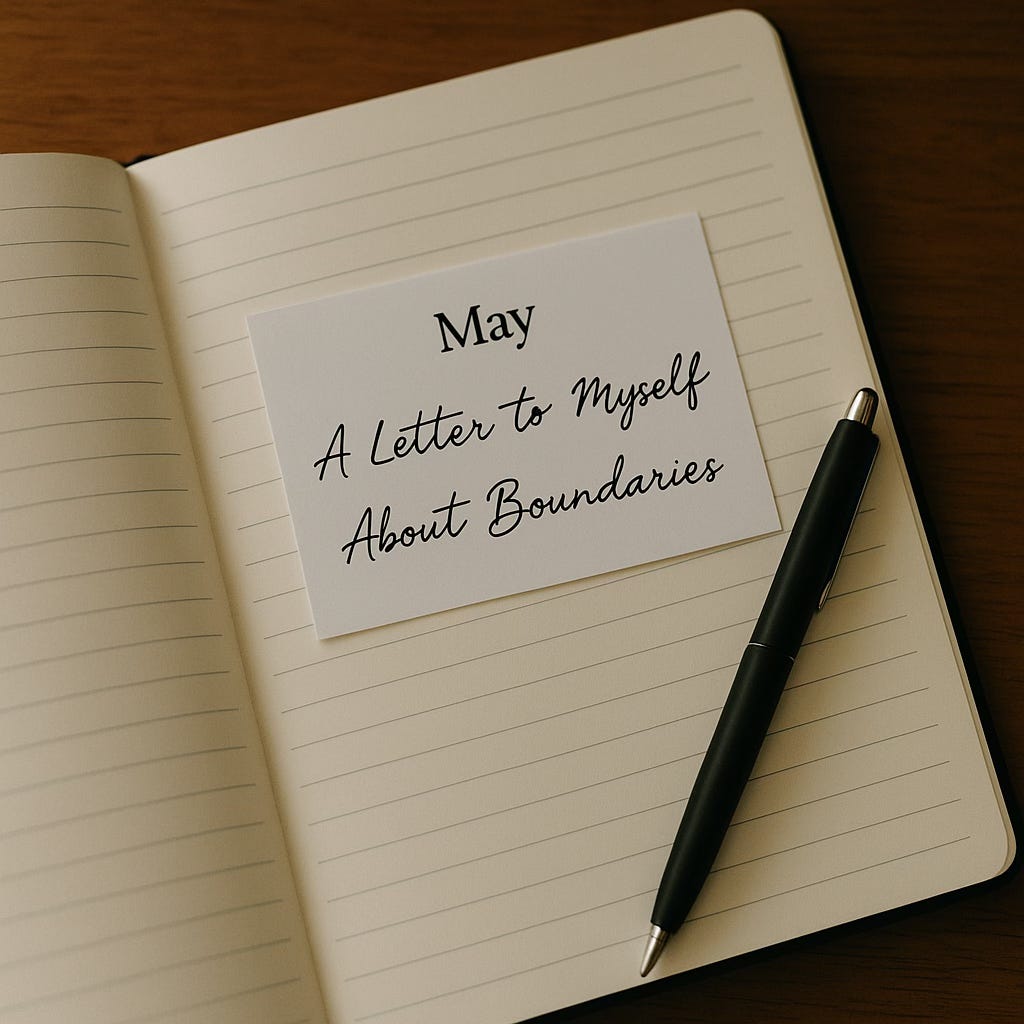 May
A Letter to Myself
About Boundaries